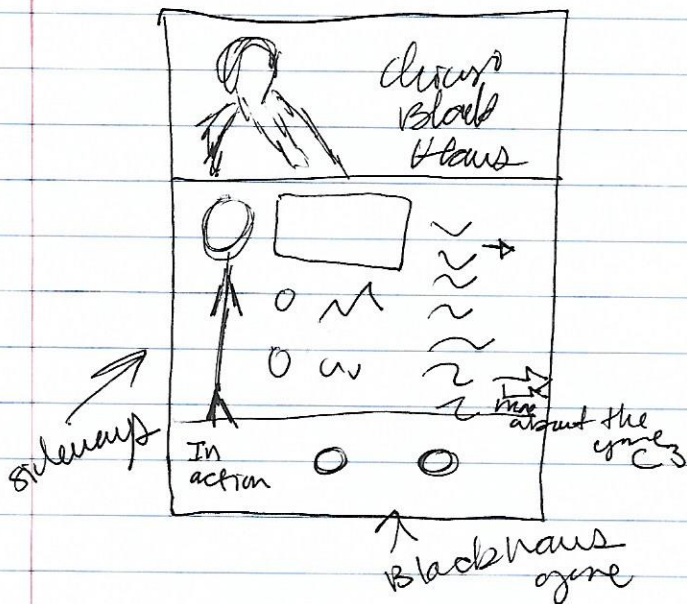 Black
Haus
sideways
In
action
more
about the
game
C3
Blackhaus
game